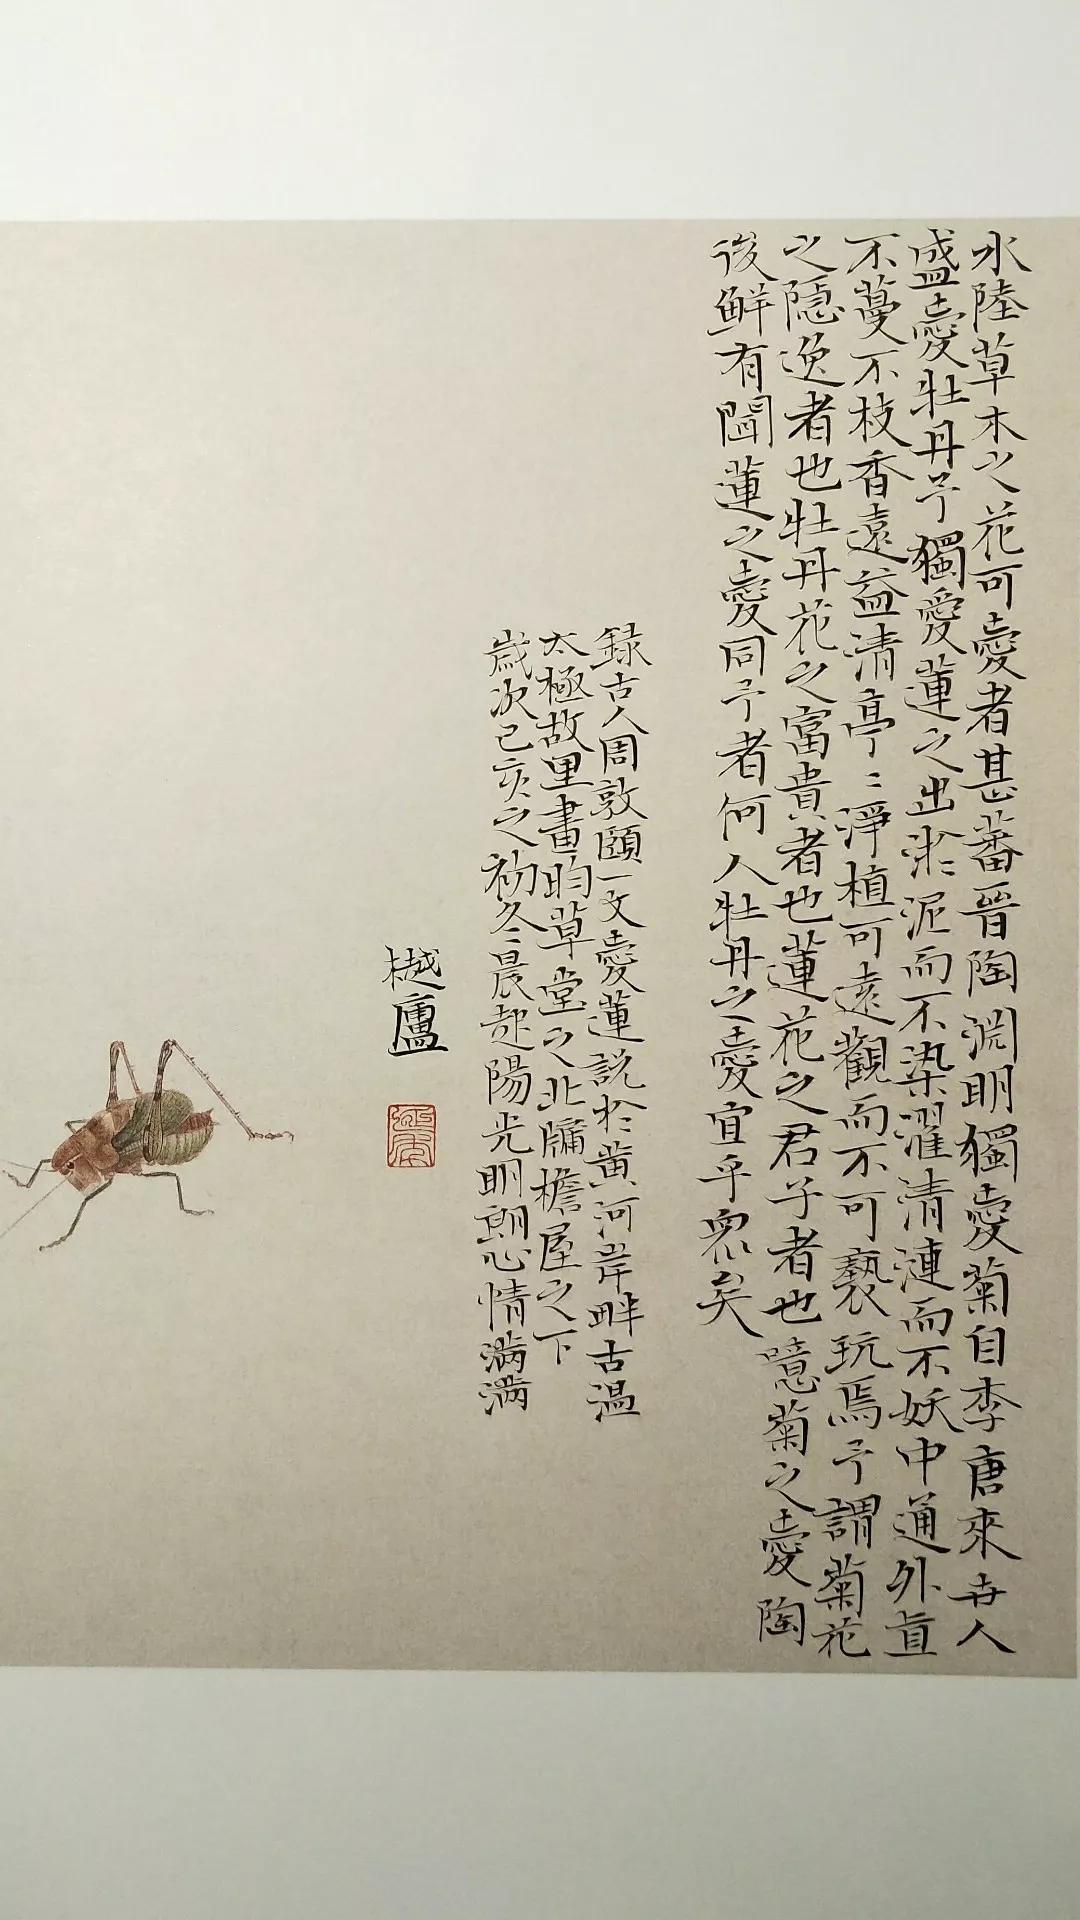 水陸草木之花可愛者甚蕃晉陶淵明獨愛菊自李唐來世人
盛愛牡丹予獨愛蓮之出淤泥而不染濯清漣而不妖中通外直
不蔓不枝香遠益清亭〻淨植可遠觀而不可褻玩焉予謂菊花
之隱逸者也牡丹花之富貴者也蓮花之君子者也噫菊之愛陶
後鮮有聞蓮之愛同予者何人牡丹之愛宜乎衆矣
録古人周敦頤一文愛蓮説於黃河岸畔古溫
太極故里畫昀草堂之北牖檐屋之下
歲次己亥之初冬晨起陽光明朗心情滿滿
樾廬